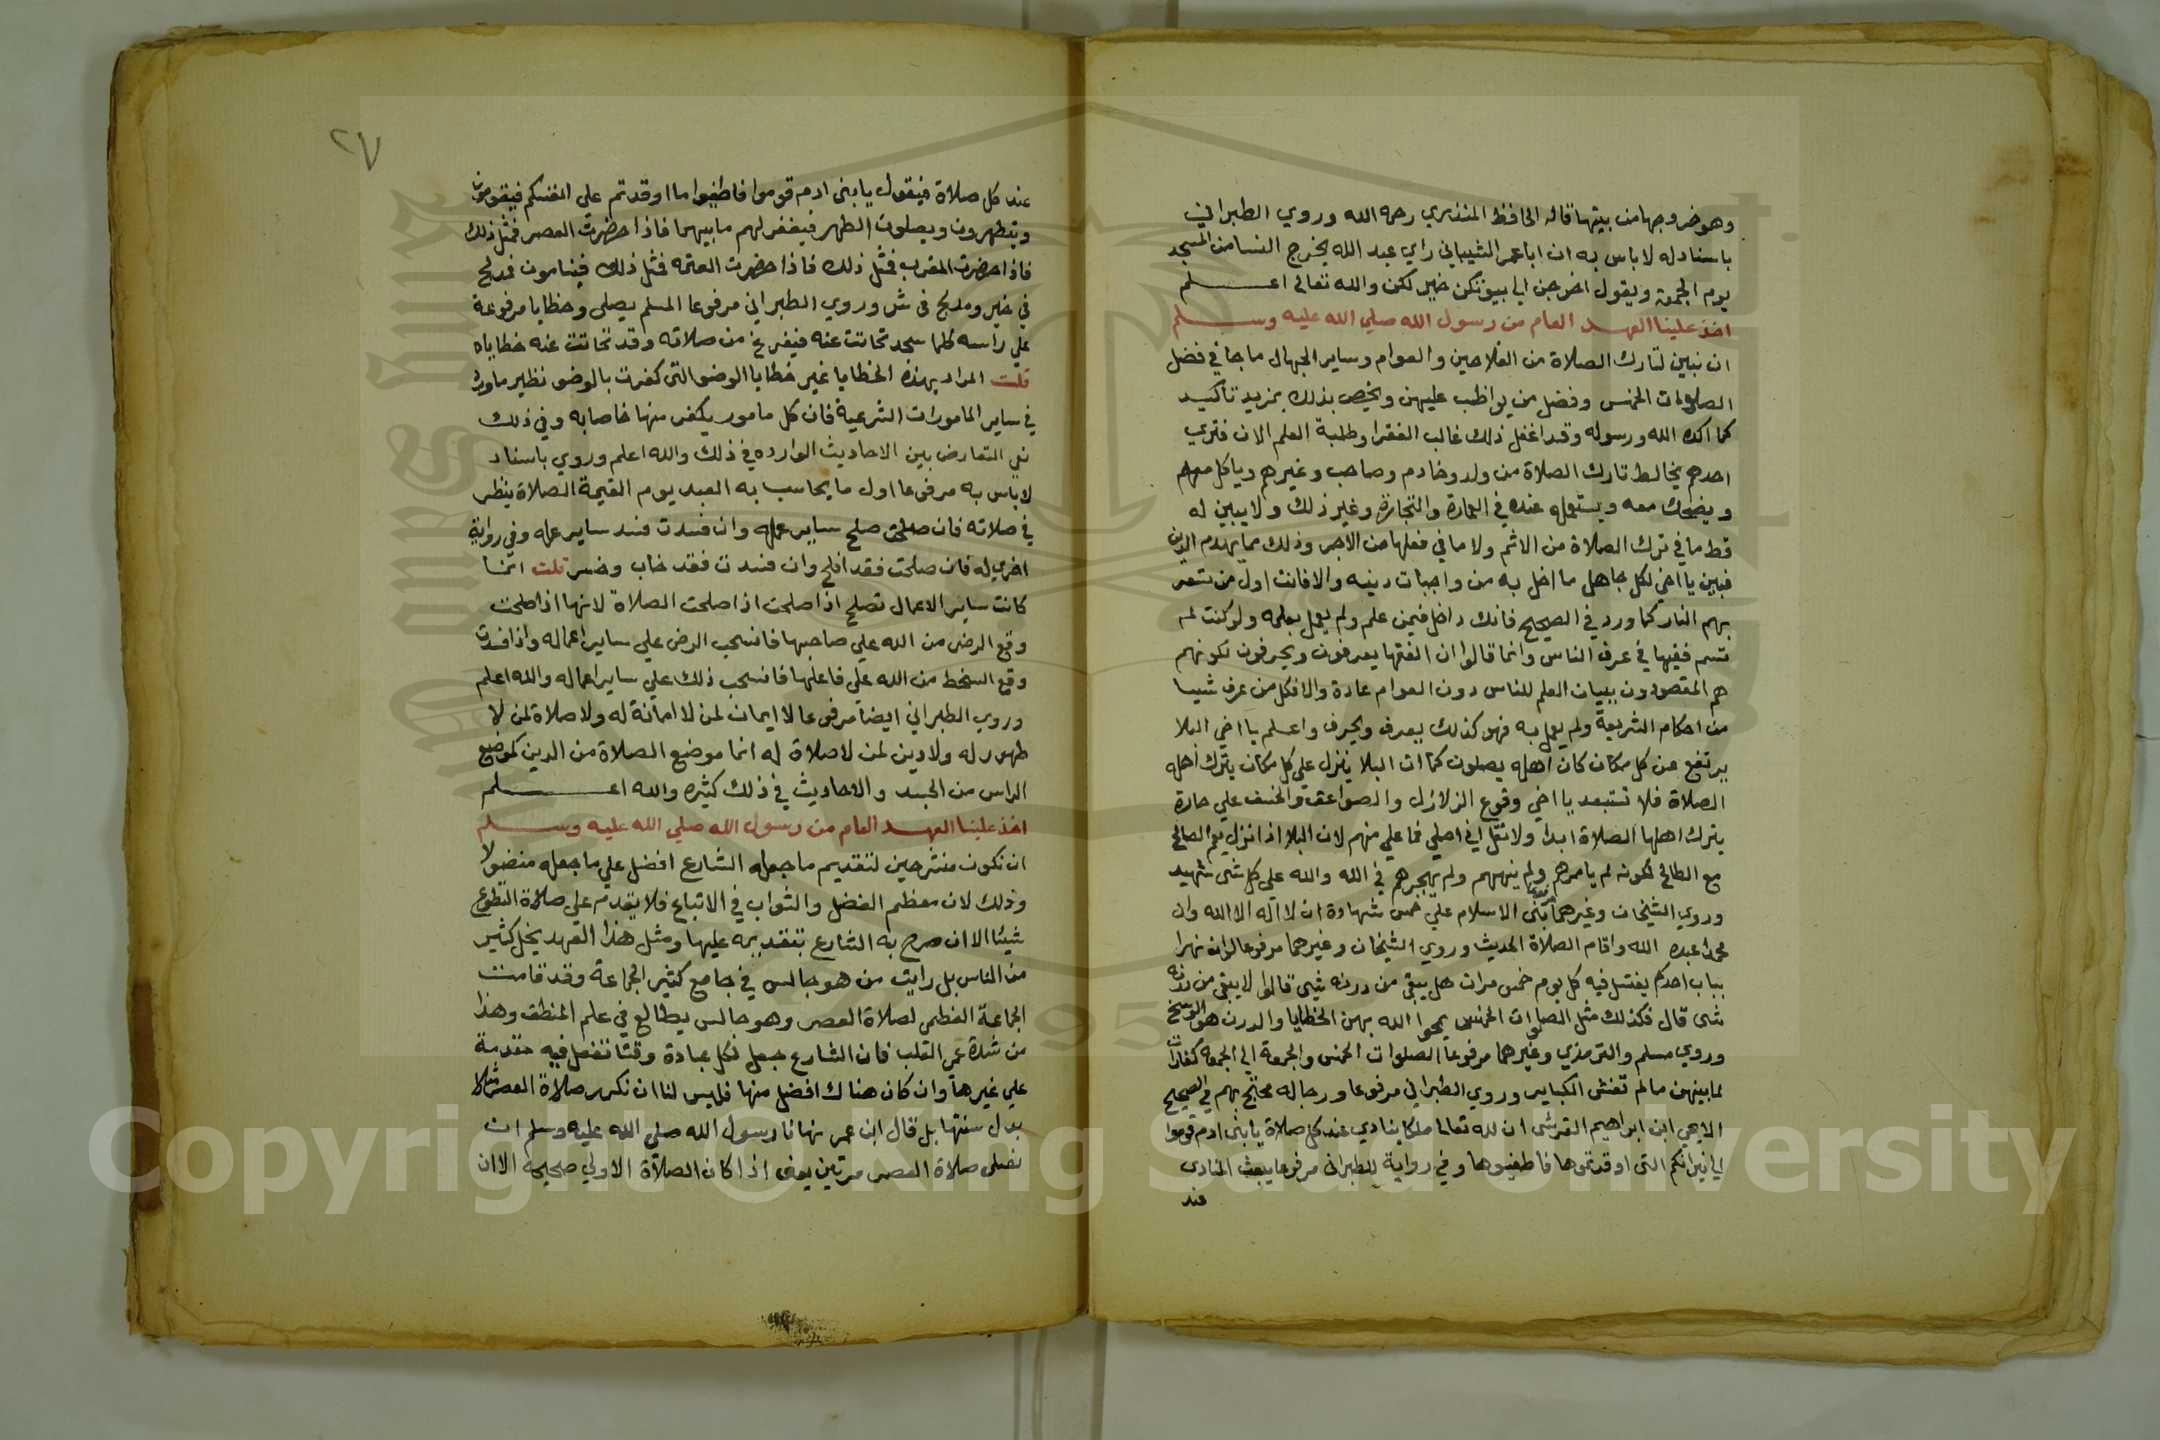 وهو خروجها من بيتها قاله الحافظ المنذري رحمه الله وروي الطبراني
باسناد له لا باس به ان ابا عمر الشيباني راي عبد الله يخرج النسا من المسجد
يوم الجمعة ويقول اخرجن الي بيوتكن خير لكن والله تعالي اعلم
اخذ علينا العهد العام من رسول الله صلي الله عليه وسلم
ان نبين لتارك الصلاة من الفلاحين والعوام وساير الجهال ما جا في فضل
الصلوات الخمس وفضل من يواظب عليهن ويخص بذلك بمزيد تاكيد
كما اكده الله ورسوله وقد اغفل ذلك غالب الفقرا وطلبة العلم الان فتري
احدهم يخالط تارك الصلاة من ولد وخادم وصاحب وغيرهم وياكل معهم
ويضحك معه ويستعمله عنده في العمارة والتجارة وغير ذلك ولا يبين له
قط ما في ترك الصلاة من الاثم ولا ما في فعلها من الاجر وذلك مما يهدم الدين
فبين يا اخي لكل جاهل ما اخل به من واجبات دينه والا فانت اول من تسعر
بهم النار كما ورد في الصحيح فانك داخل فيمن علم ولم يعمل بعلمه ولو كنت لم
تسم فقيها في عرف الناس وانما قالوا ان الفقها يعرفون ويحرفون لكونهم
هم المقصودون ببيان العلم للناس دون العوام عادة والا فكل من عرف شيا
من احكام الشريعة ولم يعمل به فهو كذلك يعرف ويحرف واعلم يا اخي البلا
يرتفع عن كل مكان كان اهله يصلون كما ان البلا ينزل علي كل مكان يترك اهله
الصلاة فلا تستبعد يا اخي وقوع الزلازل والصواعق والخسف علي حارة
يترك اهلها الصلاة ابدا ولا تقل اني اصلي فما علي منهم لان البلا اذا نزل يعم الصالح
مع الطالح لكونه لم يامرهم ولم ينههم ولم يهجرهم في الله والله علي كل شي شهيد
وروي الشيخان وغيرهما بني الاسلام علي خمس شهادة ان لا اله الا الله وان
محمدا عبده الله واقام الصلاة الحديث وروي الشيخان وغيرهما مرفوعا لو ان نهرا
بباب احدكم يغتسل فيه كل يوم خمس مرات هل يبقي من درنه شي قالوا لا يبقي من درنه
شي قال فكذلك مثل الصلوات الخمس يمحوا الله بهن الخطايا والدرن هو الوسخ
وروي مسلم والترمذي وغيرهما مرفوعا الصلوات الخمس والجمعة الي الجمعه كفارات
لما بينهن ما لم تغش الكباير وروي الطبراني مرفوعا ورجاله محتج بهم في الصحيح
الا يحي ابن ابراهيم القرشي ان لله تعالا ملكا ينادي عند كل صلاة يا بني ادم قوموا
الي نيرانكم التي اوقدتموها فاطفيوها وفي رواية للطبراني مرفوعا يبعث المنادي
عند
٢٧
عند كل صلاة فيقول يا بني ادم قوموا فاطفيوا ما اوقدتم علي انفسكم فيقومون
ويتطهرون ويصلون الظهر فيغفر لهم ما بينهما فاذا حضرت العصر فمثل ذلك
فاذا حضرت المغرب فمثل ذلك فاذا حضرت العتمه فمثل ذلك فينامون فمدلج
في خير ومدلج في شر وروي الطبراني مرفوعا المسلم يصلي وخطايا مرفوعة
علي راسه كلما سجد تحاتت عنه فيفرغ من صلاته وقد تحاتت عنه خطاياه
قلت المراد بهذه الخطايا غير خطايا الوضو التي كفرت بالوضو نظير ما ورد
في ساير المامورات الشرعية فان كل مامور يكفر منها خاصا به وفي ذلك
نفي التعارض بين الاحاديث الوارده في ذلك والله اعلم وروي باسناد
لا باس به مرفوعا اول ما يحاسب به العبد يوم القيمة الصلاة ينظر
في صلاته فان صلحت صلح ساير عمله وان فسدت فسد ساير عمله وفي رواية
اخري له فان صلحت فقد افلح وان فسدت فقد خاب وخسر قلت انما
كانت ساير الاعمال تصلح اذا صلحت اذا صلحت الصلاة لانها اذا صلحت
وقع الرضي من الله علي صاحبها فانسحب الرضي علي ساير اعماله واذا فسدت
وقع السخط من الله علي فاعلها فانسحب ذلك علي ساير اعماله والله اعلم
وروي الطبراني ايضا مرفوعا لا ايمان لمن لا امانة له ولا صلاة لمن لا
طهور له ولا دين لمن لا صلاة له انما موضع الصلاة من الدين كموضع
الراس من الجسد والاحاديث في ذلك كثيره والله اعلم
اخذ علينا العهد العام من رسول الله صلي الله عليه وسلم
ان نكون منشرحين لتقديم ما جعله الشارع افضل علي ما جعله مفضولا
وذلك لان معظم الفضل والثواب في الاتباع فلا يقدم علي صلاة التطوع
شيئا الا ان صرح به الشارع بتقديمه عليها ومثل هذا العهد يخل كثير
من الناس بل رايت من هو جالس في جامع كثير الجماعة وقد قامت
الجماعة العظمي لصلاة العصر وهو جالس يطالع في علم المنطق وهذا
من شدة عمي القلب فان الشارع جعل لكل عبادة وقتا تفعل فيه مقدمة
علي غيرها وان كان هناك افضل منها فليس لنا ان نكرر صلاة العصر مثلا
بدل سنتها بل قال ابن عمر نهانا رسول الله صلي الله عليه وسلم ان
نصلي صلاة العصر مرتين يعني اذا كان الصلاة الاولي صحيحه الا ان
Copyright © King Saud University